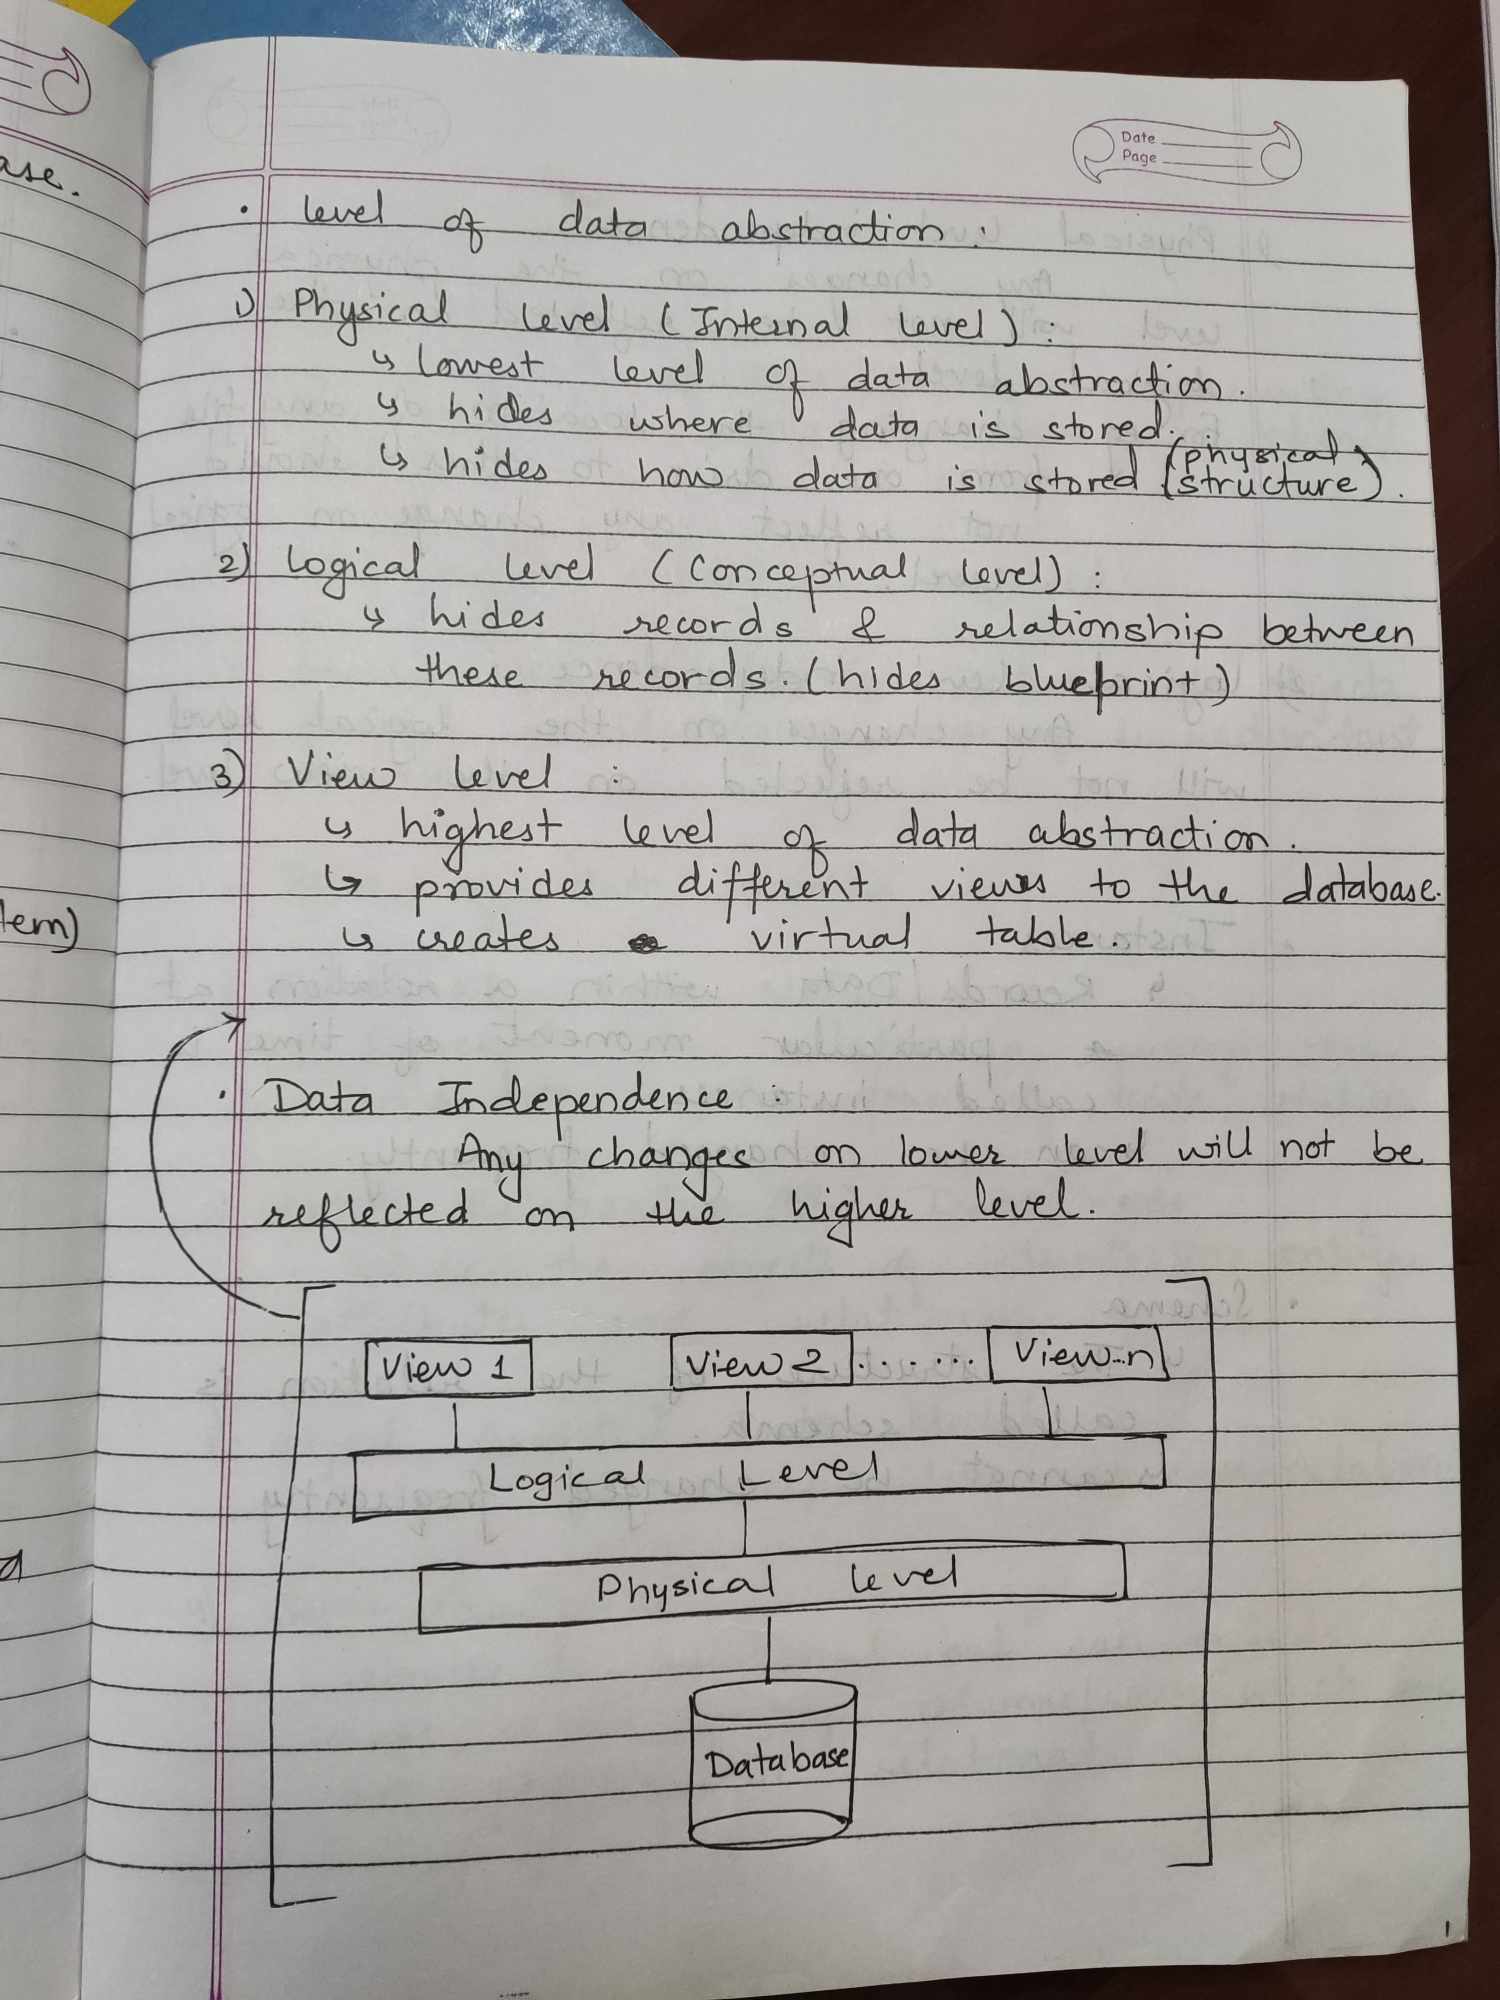 ase.
Date
Page
• level of data abstraction :
1) Physical level (Internal level) :
↳ lowest level of data abstraction.
↳ hides where data is stored.
↳ hides how data is stored (physical structure).
2) Logical level (Conceptual level) :
↳ hides records & relationship between
these records. (hides blueprint)
3) View level :
↳ highest level of data abstraction.
↳ provides different views to the database.
↳ creates virtual table.
tem)
• Data Independence :
Any changes on lower level will not be
reflected on the higher level.
View 1 View 2 ....... View n
Logical Level
Physical level
Database